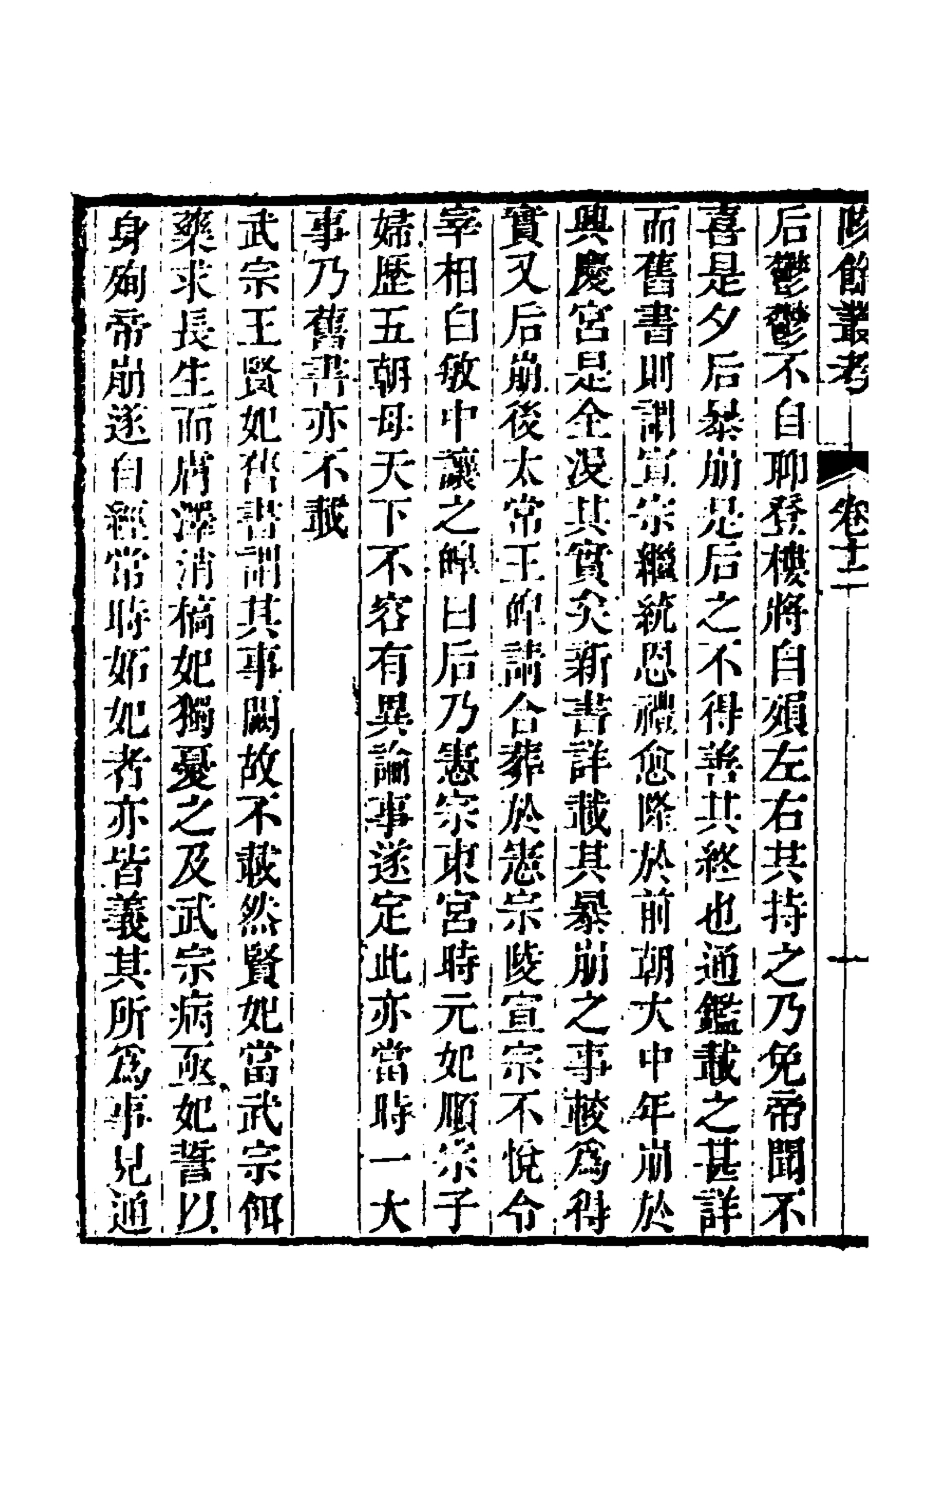 陔餘叢考 卷十二 十一
后鬱鬱不自聊登樓將自殞左右共持之乃免帝聞不
喜是夕后暴崩是后之不得善其終也通鑑載之甚詳
而舊書則謂宣宗繼統恩禮愈隆於前朝大中年崩於
興慶宮是全沒其實矣新書詳載其暴崩之事較為得
實又后崩後太常王皥請合葬於憲宗陵宣宗不悅令
宰相白敏中讓之皥曰后乃憲宗東宮時元妃順宗子
婦歷五朝母天下不容有異論事遂定此亦當時一大
事乃舊書亦不載
武宗王賢妃舊書謂其事闕故不載然賢妃當武宗餌
藥求長生而膚澤消槁妃獨憂之及武宗病亟妃誓以
身殉帝崩遂自經常時妬妃者亦皆義其所為事見通